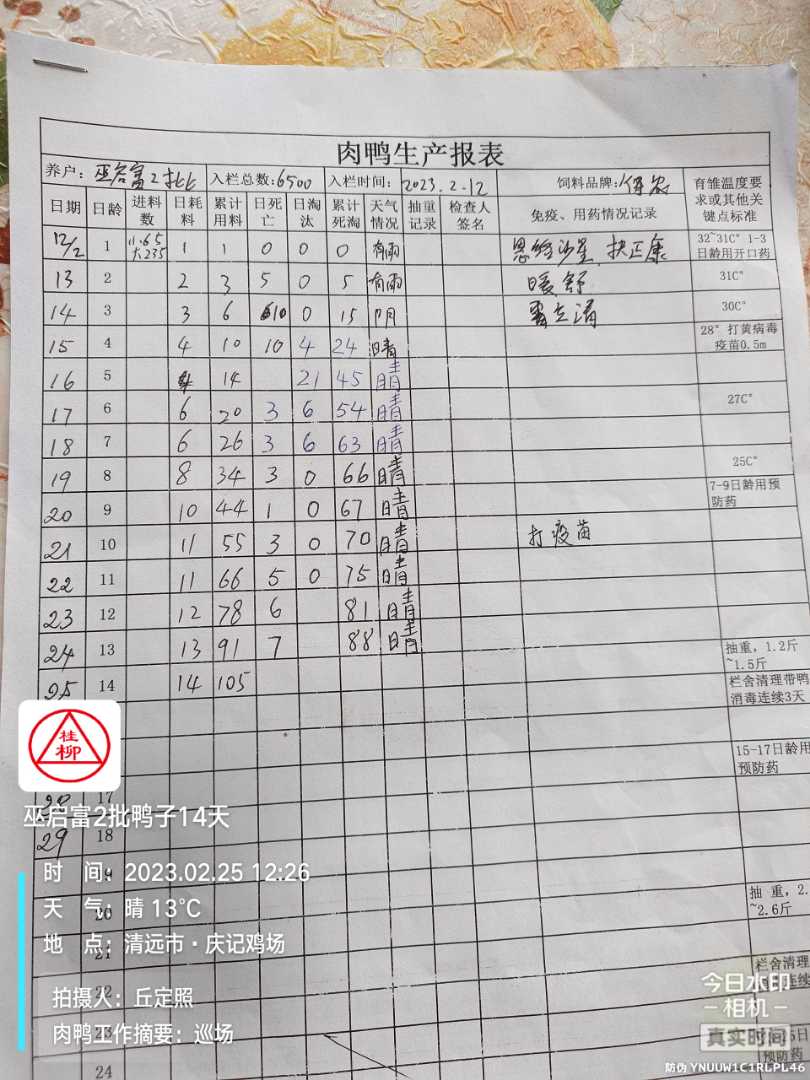 肉鸭生产报表
养户: 巫启富2批 入栏总数:6500 入栏时间: 2023.2.12 饲料品牌: 育雏温度要求或其他关键点标准
日期 日龄 进料数 日耗料 累计用料 日死亡 日淘汰 累计死淘 天气情况 抽重记录 检查人签名 免疫、用药情况记录
12/2 1 1 1 0 0 0 有雨 恩诺沙星、扶正康 32~31C° 1-3日龄用开口药
13 2 2 3 5 0 5 有雨 暖舒 31C°
14 3 3 6 10 0 15 阴 30C°
15 4 4 10 10 4 24 晴 28° 打黄病毒疫苗0.5m
16 5 4 14 21 45 晴
17 6 6 20 3 6 54 晴 27C°
18 7 6 26 3 6 63 晴
19 8 8 34 3 0 66 晴 25C°
20 9 10 44 1 0 67 晴 7-9日龄用预防药
21 10 11 55 3 0 70 晴 打疫苗
22 11 11 66 5 0 75 晴
23 12 12 78 6 81 晴
24 13 13 91 7 88 晴 抽重，1.2斤~1.5斤
25 14 14 105 栏舍清理带鸭消毒连续3天
桂柳
15-17日龄用预防药
28 17
巫启富2批鸭子14天
29 18
时 间: 2023.02.25 12:26
天 气: 晴 13℃
20
抽重，2.
~2.6斤
地 点: 清远市·庆记鸡场
21
栏舍清理
连续
拍摄人: 丘定照
22
今日水印
相机
肉鸭工作摘要: 巡场
23
真实时间
预防药
防伪 YNUUW1C1RLPL46
24